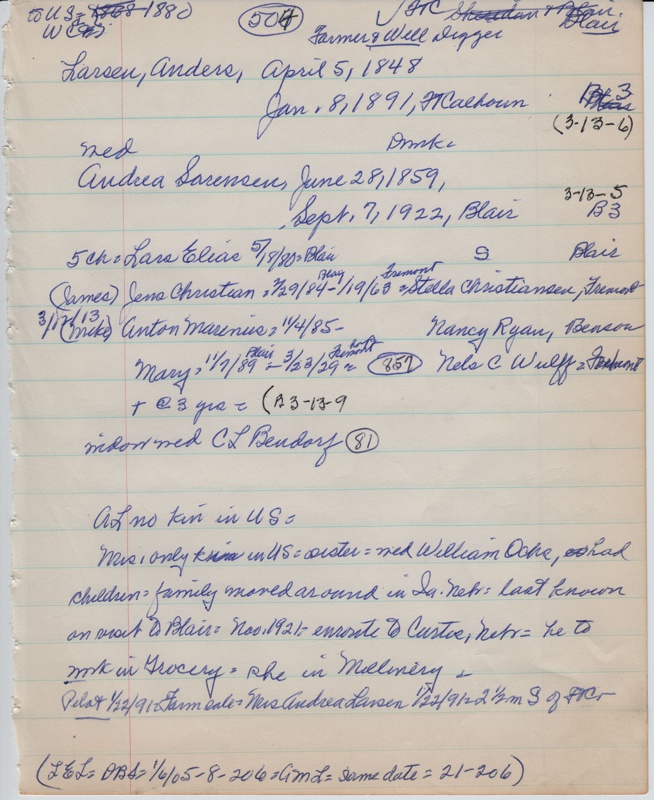 to US = 1868-1880
504
✓ FtC Sheridan + Blair.
Blair
WC
Farmer & Well Digger
Larsen, Anders, April 5, 1848
Jan. 8, 1891, Ft Calhoun B 3
(3-13-6)
med Dmk =
Andrea Sorensen, June 28, 1859, 3-13-5
Sept. 7, 1922, Blair B3
5 ch = Lars Elias 5/18/80 = Blair S Blair
(James) Jens Christian = 7/29/84 Blair - 1/19/63 Fremont = Stella Christiansen, Fremont
3/12/13
(Mike) Anton Marenius = 11/4/85 - Nancy Ryan, Benson
Mary = 11/7/89 Blair - 3/23/29 Fremont = 857 Nels C Wulff = Fremont
+ @ 3 yrs = (B3-13-9
widow med C L Bendorf 81
AL no kin in US =
Mrs. only kin in US = sister = med William Ochs, had
children = family moved around in Ia. Nebr = last known
on visit to Blair = Nov. 1921 = enroute to Curtis, Nebr = he to
work in Grocery = she in Millinery =
Pilot 1/22/91 = Farm sale = Mrs Andrea Larsen 1/22/91 = 2 1/2 m S of Ft C
(LEL = DB = 1/6/05-8-206 = AML = same date = 21-206)